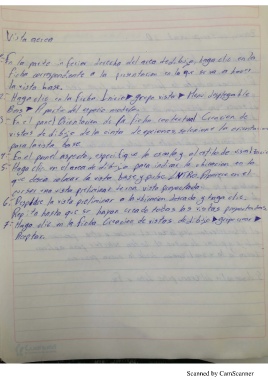 Vista aerea
En la parte inferior derecha del area de dibujo, haga clic en la
ficha correspondiente a la presentacion en la que se va a
la vista base.
2- Haga clic en la ficha Inicio ▶ grupo vista ▶ Menu desplegable
Base ▶ A partir del espacio modelo.
3- En el panel Orientacion de la ficha contextual Creacion de
vistas de dibujo de la cinta de opciones, seleccione la orientacion
para la vista base.
4- En el panel aspecto, especifique la escala y
5- Haga clic en el area de dibujo para indicar la ubicacion en la
que desea colocar la vista base y pulse INTRO. Aparece en el
cursor una vista preliminar de una vista proyectada
6- Desplace la vista preliminar a la ubicacion deseada y haga clic.
Rep. te hasta que se hayan creado todas las vistas proyectadas
7- Haga clic en la ficha Creacion de vistas de dibujo ▶ grupo ▶
Aceptar.
Scanned by CamScanner